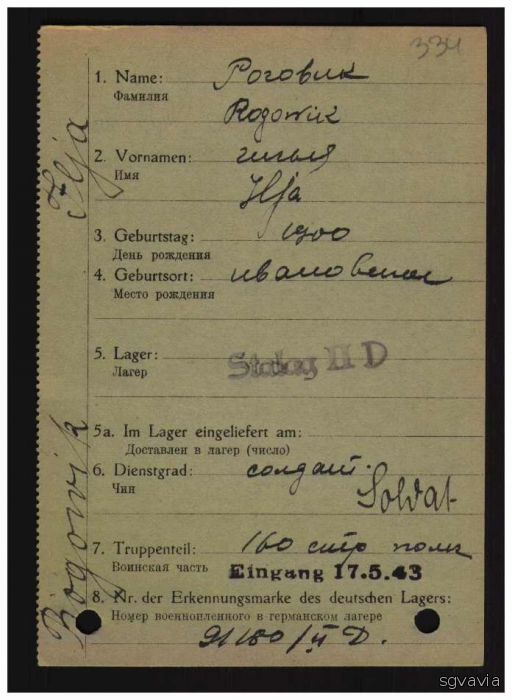 334
1. Name: Роговик
Фамилия
Rogowik
2. Vornamen: илья
Имя
Ilja
3. Geburtstag: 1900
День рождения
4. Geburtsort:
Место рождения
5. Lager: Stalag II D
Лагерь
5a. Im Lager eingeliefert am:
Доставлен в лагерь (число)
6. Dienstgrad: солдат.
Чин
Soldat
7. Truppenteil: 160 стр полк
Воинская часть Eingang 17.5.43
8. Nr. der Erkennungsmarke des deutschen Lagers:
Номер военнопленного в германском лагере
/II D.
Rogowik Ilja
sgvavia